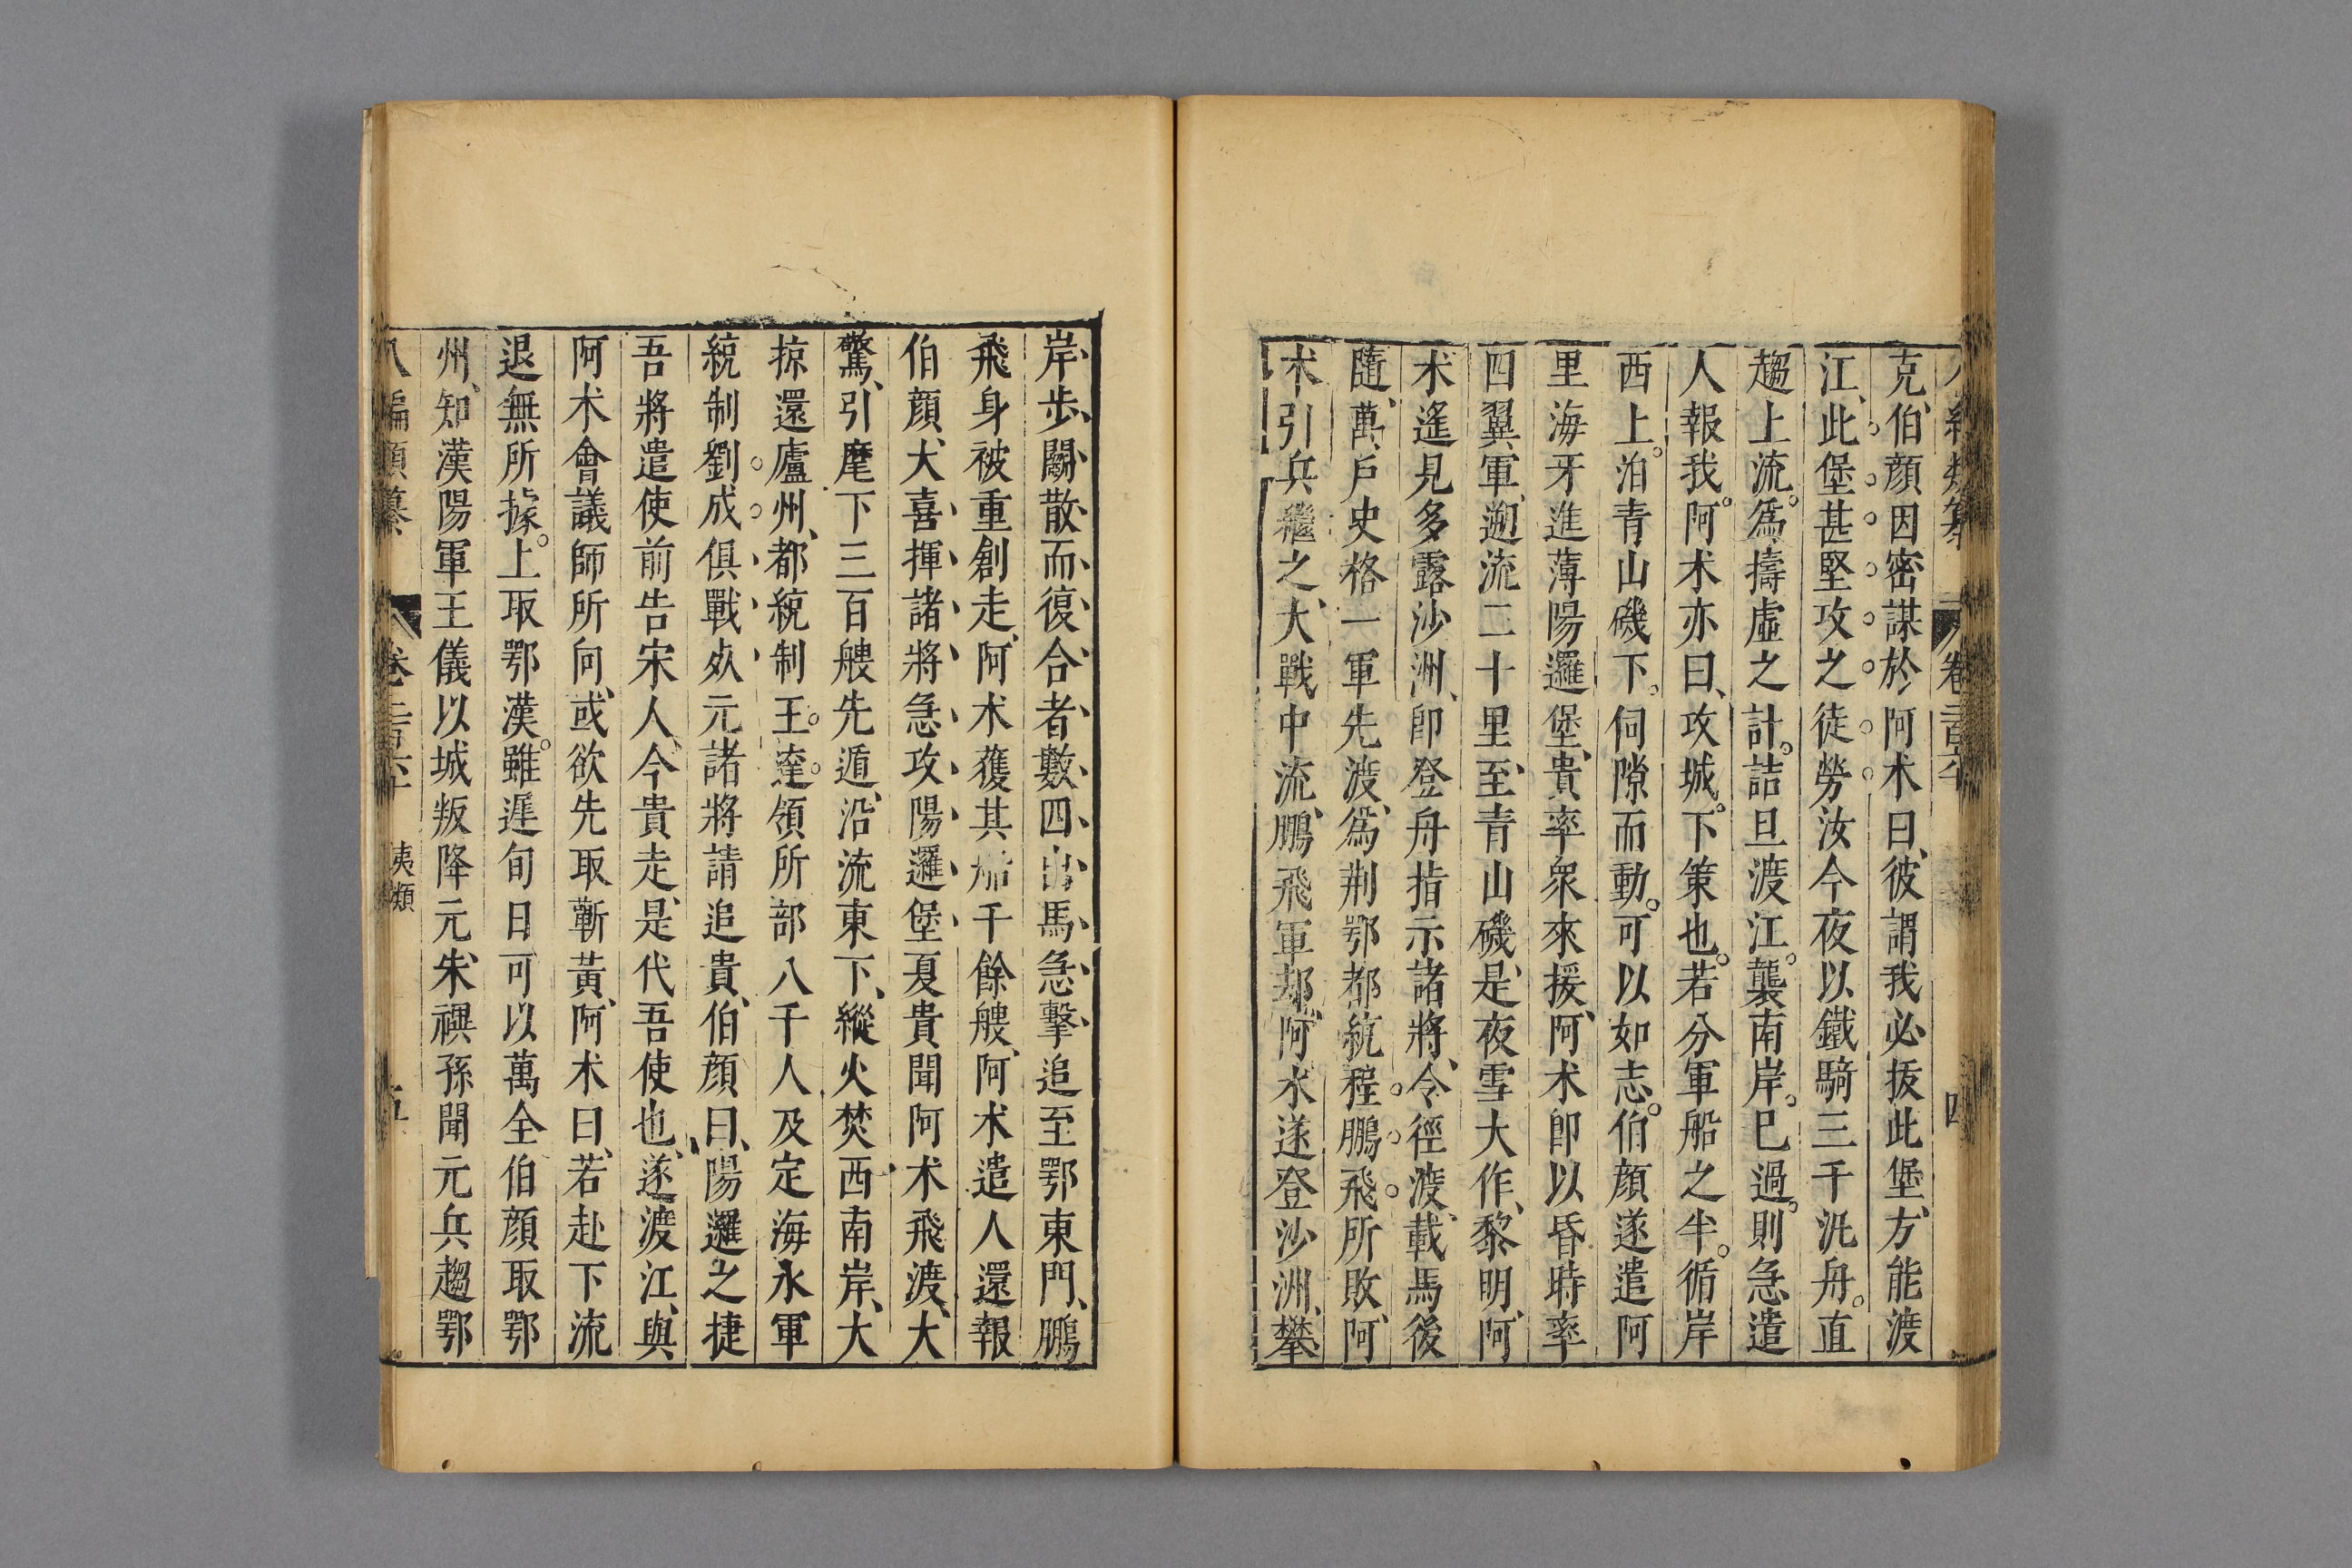 克、伯顏因密謀於阿术曰、彼謂我必拔此堡、方能渡
江、此堡甚堅攻之徒勞汝今夜以鐵騎三千汎舟。直
趨上流。爲擣虛之計。詰旦渡江。襲南岸。已過。則急遣
人報我。阿术亦曰、攻城。下策也。若分軍船之半。循岸
西上。泊青山磯下。伺隙而動。可以如志。伯顏遂遣阿
里海牙進薄陽邏堡、貴率衆來援、阿术即以昏時率
四翼軍、遡流二十里、至青山磯、是夜雪大作、黎明、阿
术遙見多露沙洲、即登舟指示諸將、令徑渡、載馬後
隨、萬戶史格一軍先渡、爲荆鄂都統程鵬飛所敗、阿
术引兵繼之、大戰中流、鵬飛軍却、阿术遂登沙洲、攀
岸步鬭散而復合者數四出馬急擊追至鄂東門、鵬
飛身被重創走、阿术獲其船千餘艘、阿术遣人還報
伯顏、大喜揮諸將急攻陽邏堡夏貴聞阿术飛渡、大
驚、引麾下三百艘先遁、沿流東下、縱火焚西南岸、大
掠還廬州、都統制王達領所部八千人及定海水軍
統制劉成俱戰死元諸將請追貴、伯顏曰、陽邏之捷
吾將遣使前告宋人、今貴走、是代吾使也、遂渡江、與
阿术會議師所向、或欲先取蘄黃、阿术曰、若赴下流
退無所據。上取鄂漢。雖遲旬日可以萬全伯顏取鄂
州、知漢陽軍王儀以城叛降元、朱禩孫聞元兵趨鄂
八編類纂 卷二百六十 夷類 五